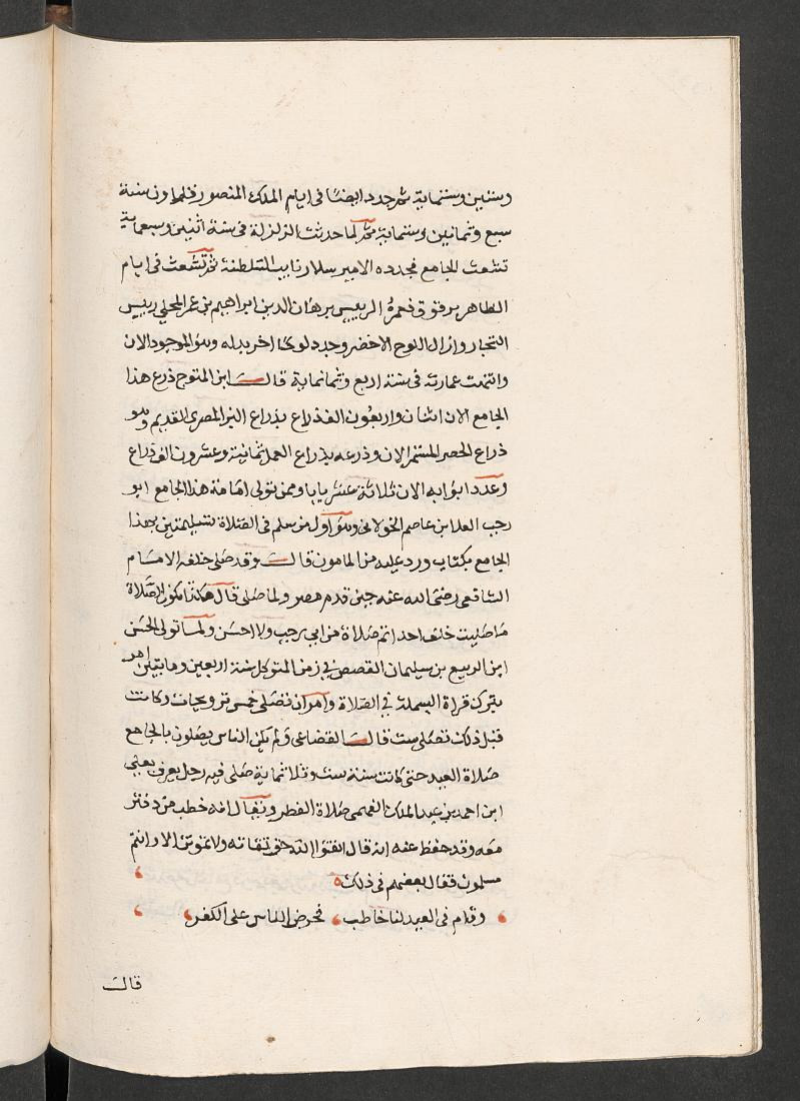 وستين وستماية ثم جدد ايضا فى ايام الملك المنصور قلاون سنة
سبع وثمانين وستماية ثم لما حدثت الزلزلة فى سنة اثنين وسبعماية
تشعث الجامع فجدده الامير سلار نايب السلطنة ثم تشعث فى ايام
الظاهر برقوق فعمره الرييس برهان الدين ابراهيم بن عمر المحلى رييس
التجار وازال اللوح الاخضر وجدد لوحا اخر بدله وهو الموجود الان
وانتهت عمارته فى سنة اربع وثمانماية قال ابن المتوج ذرع هذا
الجامع الان اثنان واربعون الف ذراع بذراع البز المصرى القديم وهو
ذراع الحصر المستمر الان وذرعه بذراع العمل ثمانية وعشرون الف ذراع
وعدد ابوابه الان ثلاثة عشر بابا وممن تولى امامة هذا الجامع ابو
رجب العلا بن عاصم الخولانى وهو اول من سلم فى الصلاة تسليمتين بهذا
الجامع بكتاب ورد عليه من المامون قال وقد صلى خلفه الامام
الشافعى رضى الله عنه حين قدم مصر ولما صلى قال هكذا تكون الصلاة
ما صليت خلف احد اتم صلاة من ابى رجب ولا احسن ولما تولى الحسن
ابن الربيع بن سليمان القصص فى زمن المتوكل سنة اربعين ومايتين امر
بترك قراة البسملة فى الصلاة وامر ان تصلى خمس ترويحات وكانت
قبل ذلك تصلى ست قال القضاعى ولم يكن الناس يصلون بالجامع
صلاة العيد حتى كانت سنة ست وثلاثماية صلى فيه رجل يعرف بعلى
ابن احمد بن عبد الملك الفهمى صلاة الفطر ويقال انه خطب من دفتر
معه وقد حفظ عنه انه قال اتقوا الله حق تقاته ولا تموتن الا وانتم
مسلمون فقال بعضهم فى ذلك
وقام فى العيد لنا خاطب فحرض الناس على الكفر
قال